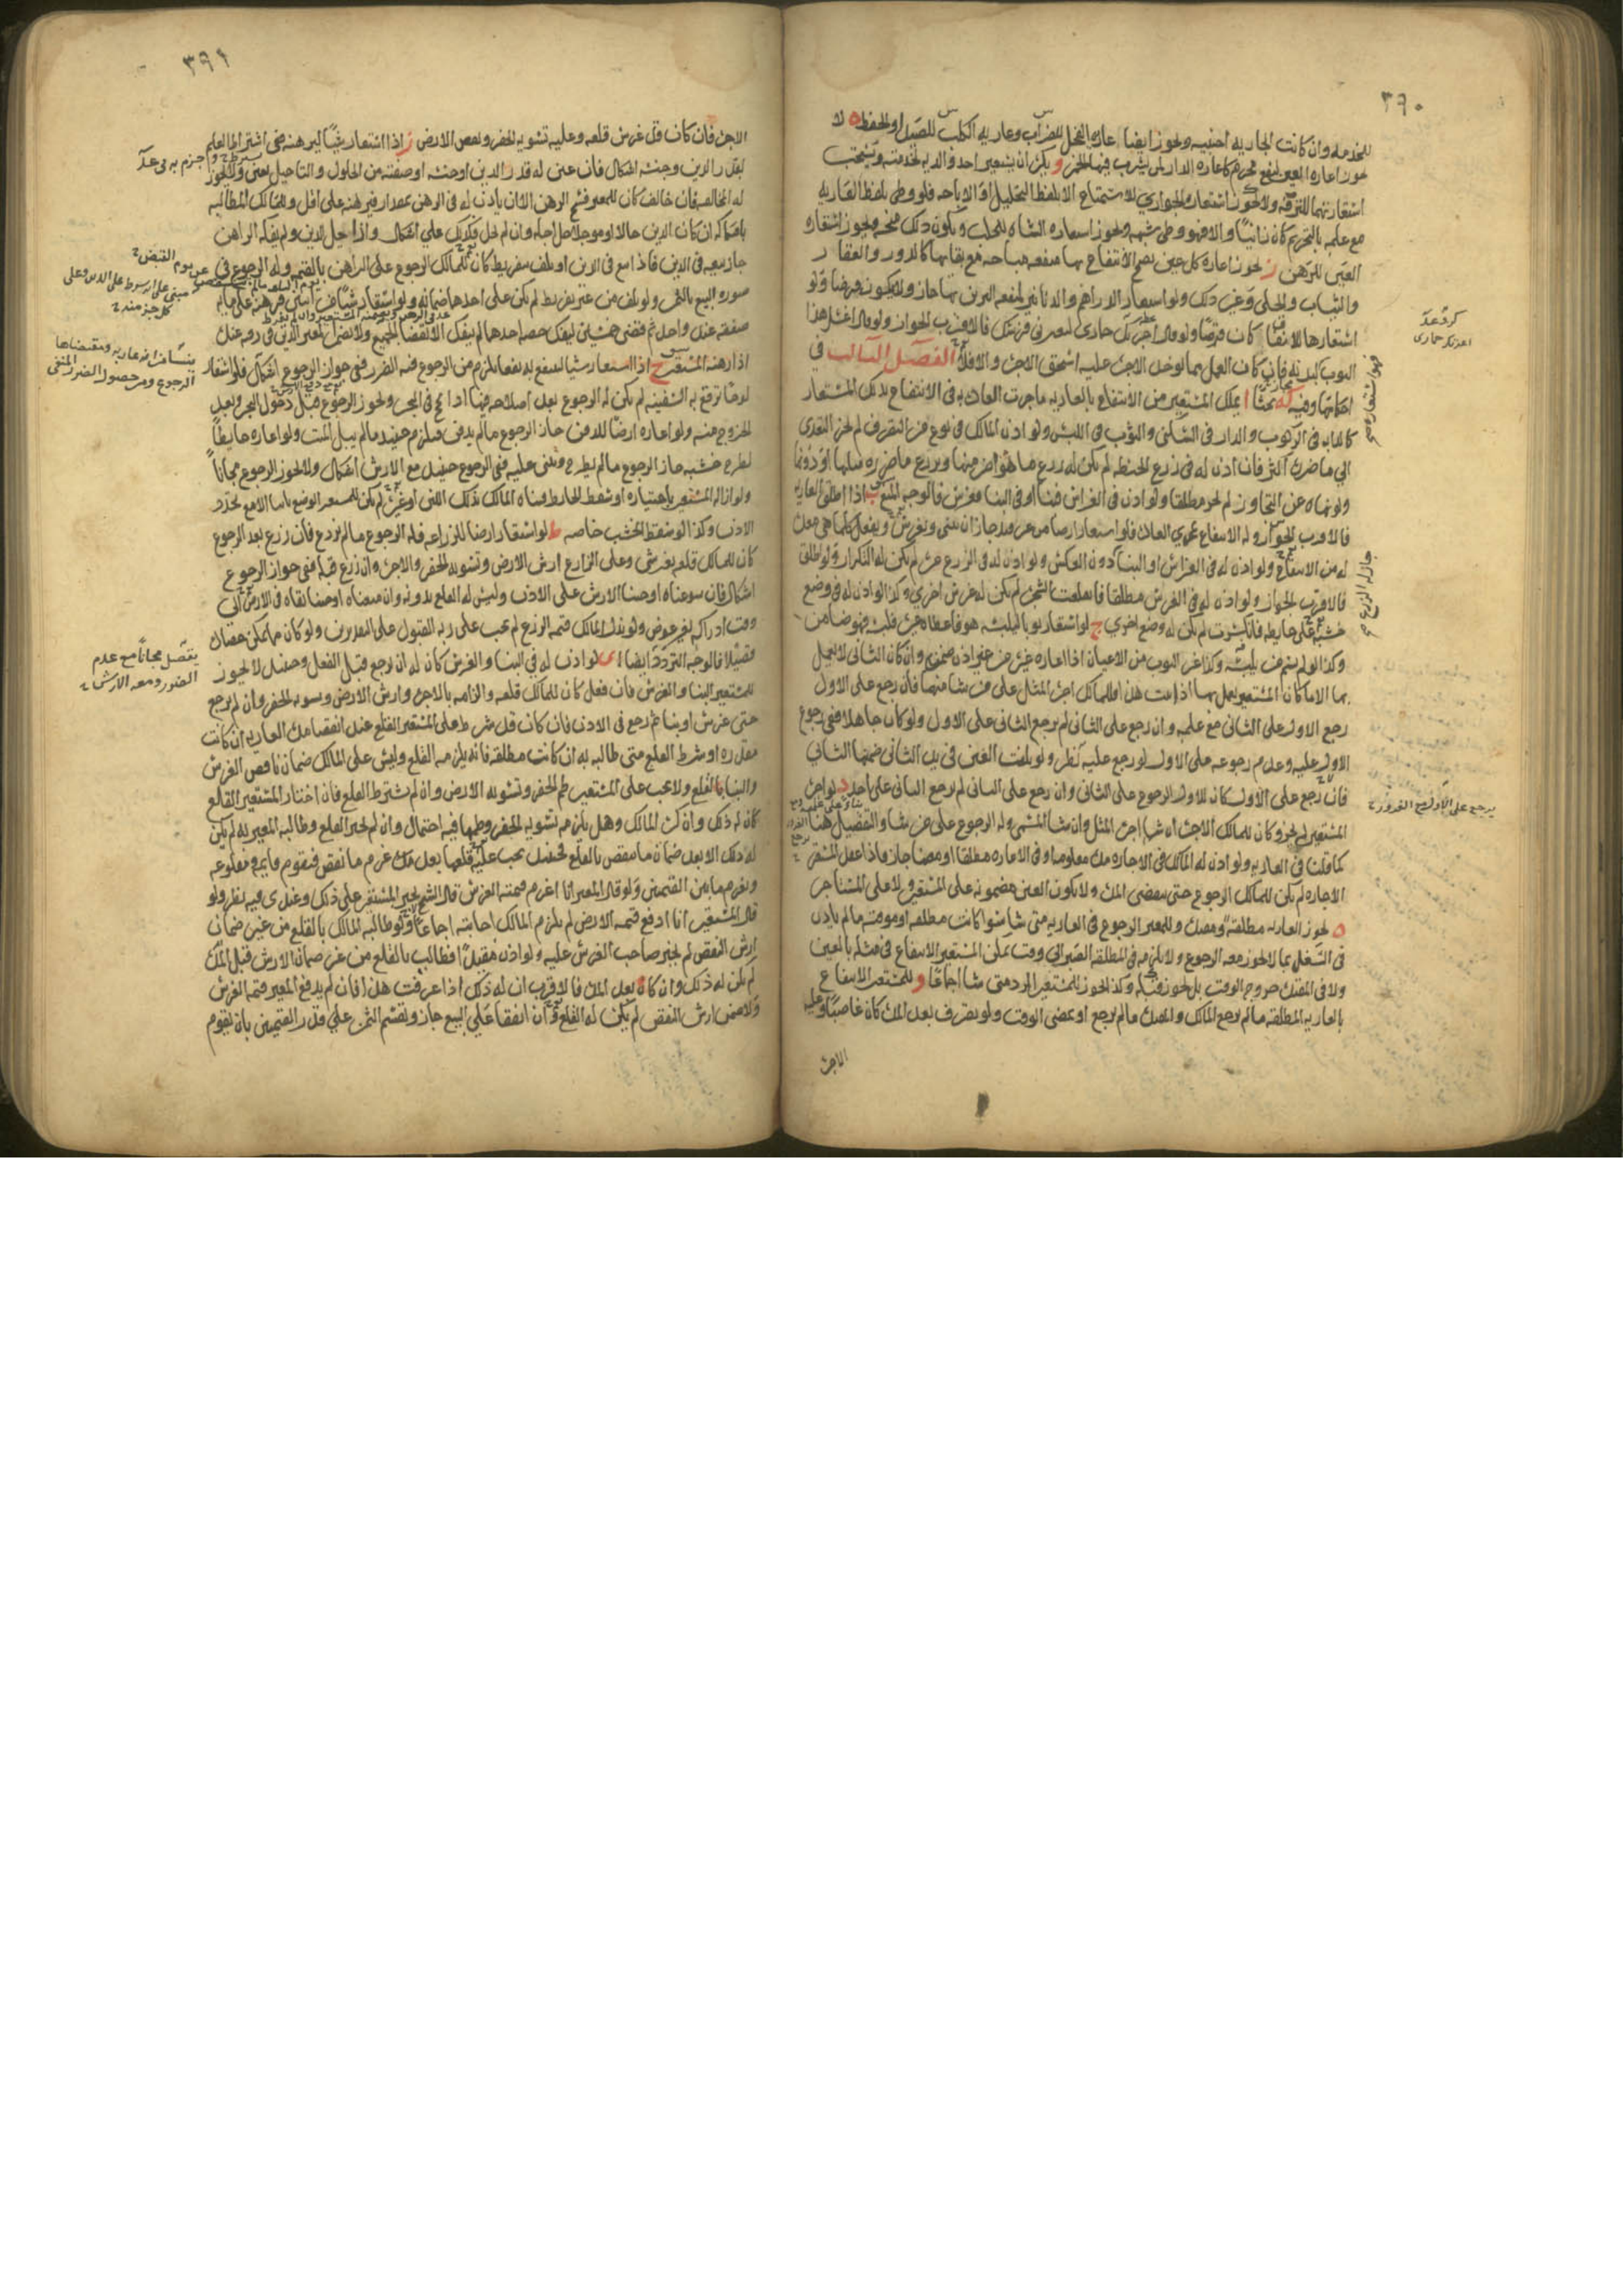 ٣٩٠
للخدمه وان كانت الجاريه اجنبيه ويجوز ايضا اعاره الفحل للضراب وعاريه الكلب للصيد او الحفظ ه لا
يجوز اعاره العين لنفع محرم كاعاره الدار لمن يشرب فيها الخمر و يكره ان يستعير احد والديه لخدمته ويستحب
استعارتهما للترفه ولا يجوز استعاره الجواري للاستمتاع الا بلفظ التحليل او الاباحه فلو وطى بلفظ العاريه
مع علمه بالتحريم كان زانيا والا فهو وطى شبهه ويجوز استعاره الشاه للحلب ويكون ذلك منحه ويجوز استعاره
الغنم للرهن ز يجوز اعاره كل عين يصح الانتفاع بها منفعه مباحه مع بقائها كالدور والعقار
والثياب والحلى وغير ذلك ولو استعار الدراهم والدنانير لمنفعه التزين بها جاز ولا يكون قرضا ولو
استعارها للانفاق كان قرضا ولو قال اجرتك حماري لتعيرني فرسك فالاقرب الجواز ولو قال اغسل هذا
الثوب كذلك فان كان العمل مما يوخذ الاجره عليه استحق الاجره والا فلا الفصل الثالث في
احكامها وفيه كه بحثا ا يملك المستعير من الانتفاع بالعاريه ما جرت العاده به في الانتفاع بذلك المستعار
كالدابه في الركوب والدار في السكنى والثوب في اللبس ولو اذن المالك في نوع من التصرف لم يجز التعدي
الى ما ضرره اكثر فان اذن له في زرع الحنطه لم يكن له زرع ما هو اضر منها ويزرع ما ضرره مثلها او دونها
ولو نهاه عن التجاوز لم يجز مطلقا ولو اذن في الغراس فبنا او في البنا فغرس فالوجه المنع ب اذا اطلق العاريه
فالاقرب الجواز وله الانتفاع بمجرى العاده فلو استعار ارضا من غير قيد جاز ان يبنى ويغرس ويفعل كلما هي معده
له من الانتفاع ولو اذن له في الغراس او البنا دون العكس ولو اذن له في الزرع مره لم يكن له التكرار ولو اطلق
فالاقرب الجواز ولو اذن له في الغرس مطلقا فانقلعت الشجره لم يكن له غرس اخرى وكذا لو اذن له في وضع
خشبه على حايطه فانكسرت لم يكن له وضع اخرى ج لو استعار ثوبا ليلبسه هو فاعطاه غيره فلبسه فهو ضامن
وكذا لو لم يتم في يلبسه وكذا غير الثوب من الاعيان اذا اعاره غيره من غير اذن ضمن وان كان الثاني لا يعمل
بها الا ما كان المستعير يعمل بها اذا ثبت هذا فللمالك اجره المثل على من شا منهما فان رجع على الاول
رجع الاول على الثاني مع علمه وان رجع على الثاني لم يرجع الثاني على الاول ولو كان جاهلا ففي رجوع
الاول عليه وعدم رجوعه على الاول لو رجع عليه نظر ولو تلفت العين في يد الثاني ضمنها الثاني
فان رجع على الاول كان للاول الرجوع على الثاني وان رجع على الثاني لم يرجع الثاني على احد د لو اجر
المستعير لم يجز وكان للمالك الاجره ان شا اجره المثل وان شا المسمى وله الرجوع على من شا والتفصيل هنا
كما قلنا في العاريه ولو اذن له المالك في الاجاره مده معلومه او في الاعاره مطلقا او مضافا جاز فاذا عقد المستعير
الاجاره لم يكن للمالك الرجوع حتى ينقضي المده ولا يكون العين مضمونه على المستعير ولا على المستاجر
ه يجوز العاريه مطلقه ومقيده وللمعير الرجوع في العاريه متى شا سوا كانت مطلقه او موقته ما لم ياذن
في الشغل بما لا يجوز معه الرجوع ولا يلزمه في المطلقه الصبر الى وقت يمكن المستعير الانتفاع في مثله بالعين
ولا في المقيده خروج الوقت بل يجوز قبله وكذا يجوز للمستعير الرد متى شا اجماعا و للمستعير الانتفاع
بالعاريه المطلقه ما لم يرجع المالك والمقيده ما لم يرجع او يمضى الوقت ولو تصرف بعد المده كان غاصبا وعليه
الاجره
جاز له الزرع
يرجع على الاول مع الغرور
٣٩١
الاجره فان كان قد غرس قلعه وعليه تسويه الحفر ونقص الارض ز اذا استعار شيا ليرهنه ففي اشتراط العلم
بقدر الدين وجنسه اشكال فان عين له قدر الدين او جنسه او صفته من الحلول والتاجيل تعين ولا يجوز
له المخالفه فان خالف كان للمعير فسخ الرهن الا ان ياذن له في الرهن بمقدار فيرهنه على اقل وللمالك المطالبه
بافتكاكه ان كان الدين حالا او موجلا حل اجله وان لم يحل فكذلك على اشكال واذا حل الدين ولم يفكه الراهن
جاز بيعه في الدين فاذا بيع في الدين او تلف بتفريط كان للمالك الرجوع على الراهن بالقيمه وله الرجوع في
صوره البيع بالثمن ولو تلف من غير تفريط لم يكن على احدهما ضمانه ولو استعار شيا من اثنين فرهنه على مايه
صفقه عند واحد ثم قضى خمسين ليفك حصه احدهما لم ينفك الا بقضا الجميع
اذا رهنه المستعير ح اذا استعار شيا لينتفع به نفعا يلزم من الرجوع فيه الضرر ففي جواز الرجوع اشكال فلو استعار
لوحا يرقع به السفينه لم يكن له الرجوع بعد اصلاحه فيها اذا لج في البحر ويجوز الرجوع قبل دخول البحر وبعد
الخروج منه ولو اعاره ارضا للدفن جاز الرجوع ما لم يدفن فيلزم حينئذ ما لم يبل الميت ولو اعاره حايطا
لطرح خشبه جاز الرجوع ما لم يطرح ويبنى عليه ففي الرجوع حينئذ مع الارش اشكال ولا يجوز الرجوع مجانا
ولو ازاله المستعير باختياره او سقط الحايط فبناه المالك بذلك اللبن او غيره لم يكن للمستعير الوضع ثانيا الا مع تجدد
الاذن وكذا لو سقط الخشب خاصه ط لو استعار ارضا للزراعه فله الرجوع ما لم يزرع فان زرع بعد الرجوع
كان للمالك قلعه بغير شي وعلى الزارع ارش الارض وتسويه الحفر والاجره وان زرع قبله ففي جواز الرجوع
اشكال فان سوغناه اوجبنا الارش على الاذن وليس له القلع بدونه وان منعناه اوجبنا بقاه في الارض الى
وقت ادراكه بغير عوض ولو بذل المالك قيمه الزرع لم يجب على ربه القبول على التقديرين ولو كان مما يمكن حصاده
قصيلا فالوجه التردد ايضا ى لو اذن له في البنا والغرس كان له ان يرجع قبل الفعل وحينئذ لا يجوز
للمستعير البنا والغرس فان فعل كان للمالك قلعه والزامه بالاجره وارش الارض وتسويه الحفر وان لم يرجع
حتى غرس او بنا ثم رجع في الاذن فان كان قد شرط على المستعير القلع عند انقضا مده العاريه ان كانت
مقدره او شرط القلع متى طالبه به ان كانت مطلقه فانه يلزمه القلع وليس على المالك ضمان ناقص الغرس
والبنا بالقلع ولا يجب على المستعير طم الحفر وتسويه الارض وان لم يشترط القلع فان اختار المستعير القلع
كان له ذلك وان كره المالك وهل يلزمه تسويه الحفر وطمها فيه احتمال وان لم يختر القلع وطالبه المعير به لم يكن
له ذلك الا بعد ضمان ما ينقص بالقلع فحينئذ يجب عليه قلعها بعد غرم ما نقص فيقوم قايمه ومقلوعه
ويغرم ما بين القيمتين ولو قال المعير انا اغرم قيمه الغرس قال الشيخ يجبر المستعير على ذلك وعندى فيه نظر ولو
قال المستعير انا ادفع قيمه الارض لم يلزم المالك اجابته اجماعا ولو طالبه المالك بالقلع من غير ضمان
ارش النقص لم يجبر صاحب الغرس عليه ولو اذن مقيدا فطالب بالقلع من غير ضمان الارش قبل المده
لم يكن له ذلك وان كان بعد المده فالاقرب ان له ذلك اذا عرفت هذا فان لم يدفع المعير قيمه الغرس
ولا ضمن ارش النقص لم يكن له القلع وان اتفقا على البيع جاز ويقسم الثمن على قدر القيمتين بان يقوم
يفصل مجانا مع عدم
الضرر ومعه الارش